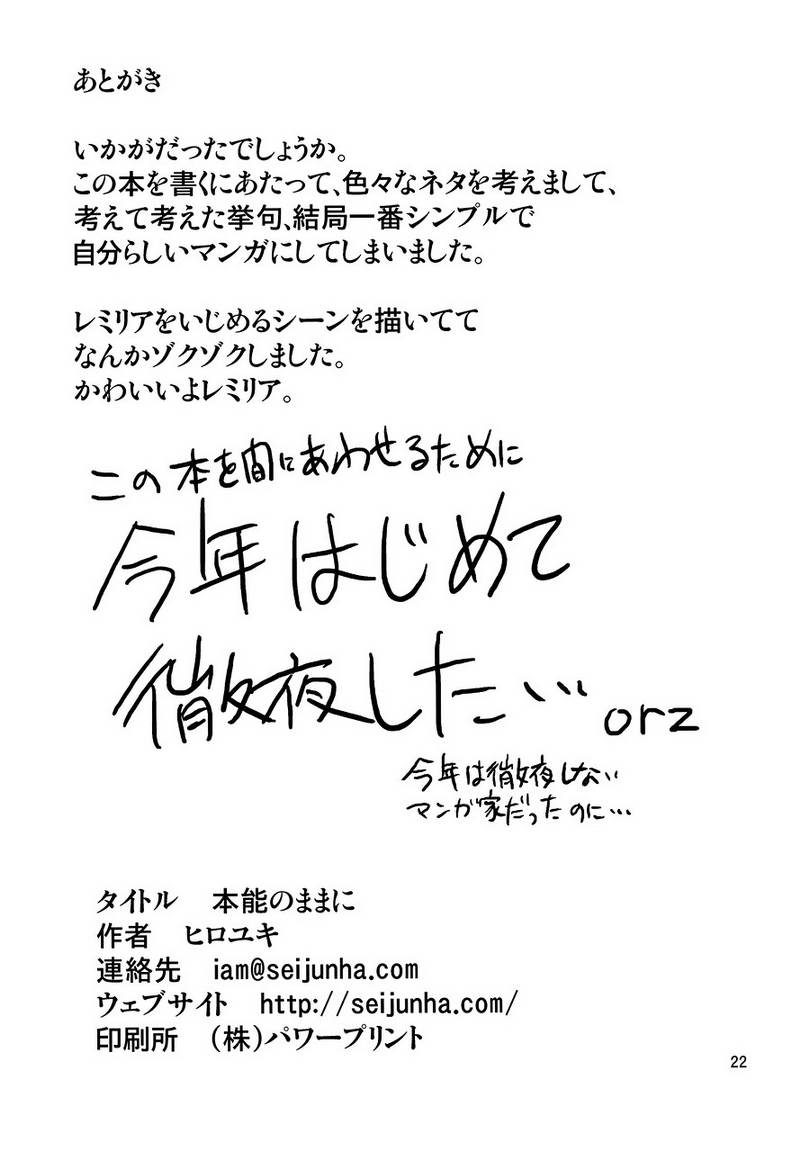 あとがき
いかがだったでしょうか。
この本を書くにあたって、色々なネタを考えまして、
考えて考えた挙句、結局一番シンプルで
自分らしいマンガにしてしまいました。
レミリアをいじめるシーンを描いてて
なんかゾクゾクしました。
かわいいよレミリア。
この本を間にあわせるために
今年はじめて
徹夜した… orz
今年は徹夜しない
マンガ家だったのに…
タイトル　本能のままに
作者　ヒロユキ
連絡先　iam@seijunha.com
ウェブサイト　http://seijunha.com/
印刷所　（株）パワープリント
22